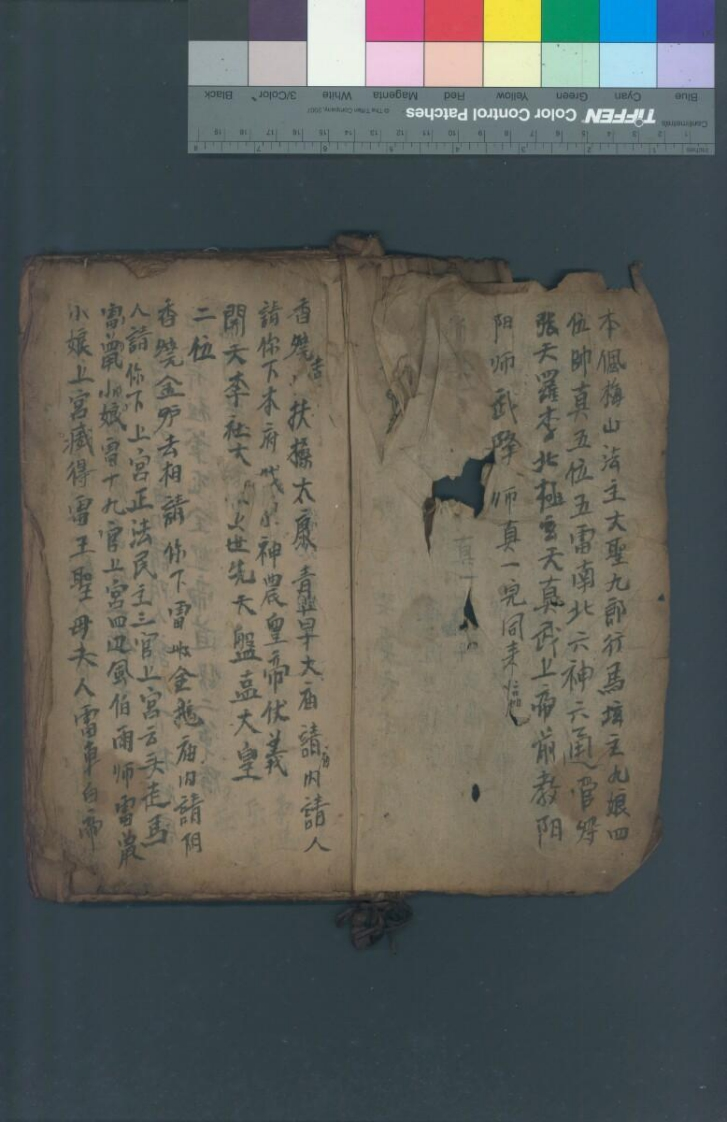 本個梅山法主大聖九郎行馬坛主九娘四
位帥真五位五雷南北六神六通官
張天羅李北極玄天真武上帝前教阳
阳师武降师真一完同来
香燒 扶搡太康青 旱大庙請内請人
請你下本府 神農皇帝伏義
開天李社大 世先天盤孟大皇
二位
香燒金炉去相請你下雷 金龍庙内請阴
人請你下上宮正法民主三官上宮云头走馬
雷 小娘雷十九官上宮四边風伯雨师雷
小娘上宮藏得雷王聖母夫人雷車白帝
Blue
Cyan
Green
Yellow
Red
Magenta
White
3/Color
Black
TIFFEN Color Control Patches
© The Tiffen Company, 2007
Centimetres
Inches